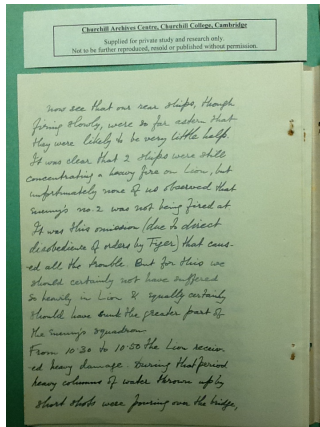 Churchill Archives Centre, Churchill College, Cambridge
Supplied for private study and research only.
Not to be further reproduced, resold or published without permission.
now see that our rear ships, though
firing slowly, were so far astern that
they were likely to be very little help.
It was clear that 2 ships were still
concentrating a heavy fire on Lion, but
unfortunately none of us observed that
enemy's no. 2 was not being fired at
It was this omission (due to direct
disobedience of orders by Tiger) that caus-
ed all the trouble. But for this we
should certainly not have suffered
so heavily in Lion & equally certainly
should have sunk the greater part of
the enemy's squadron
From 10.30 to 10.50 the Lion receiv
ed heavy damage. During that period
heavy columns of water thrown up by
short shots were pouring over the bridge,